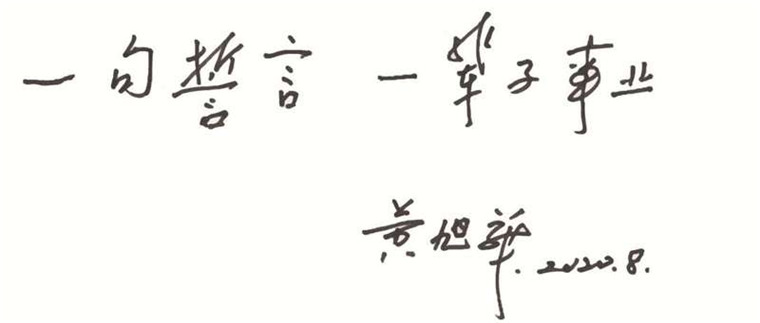 一句誓言 一辈子事业
黄旭华 2020.8.